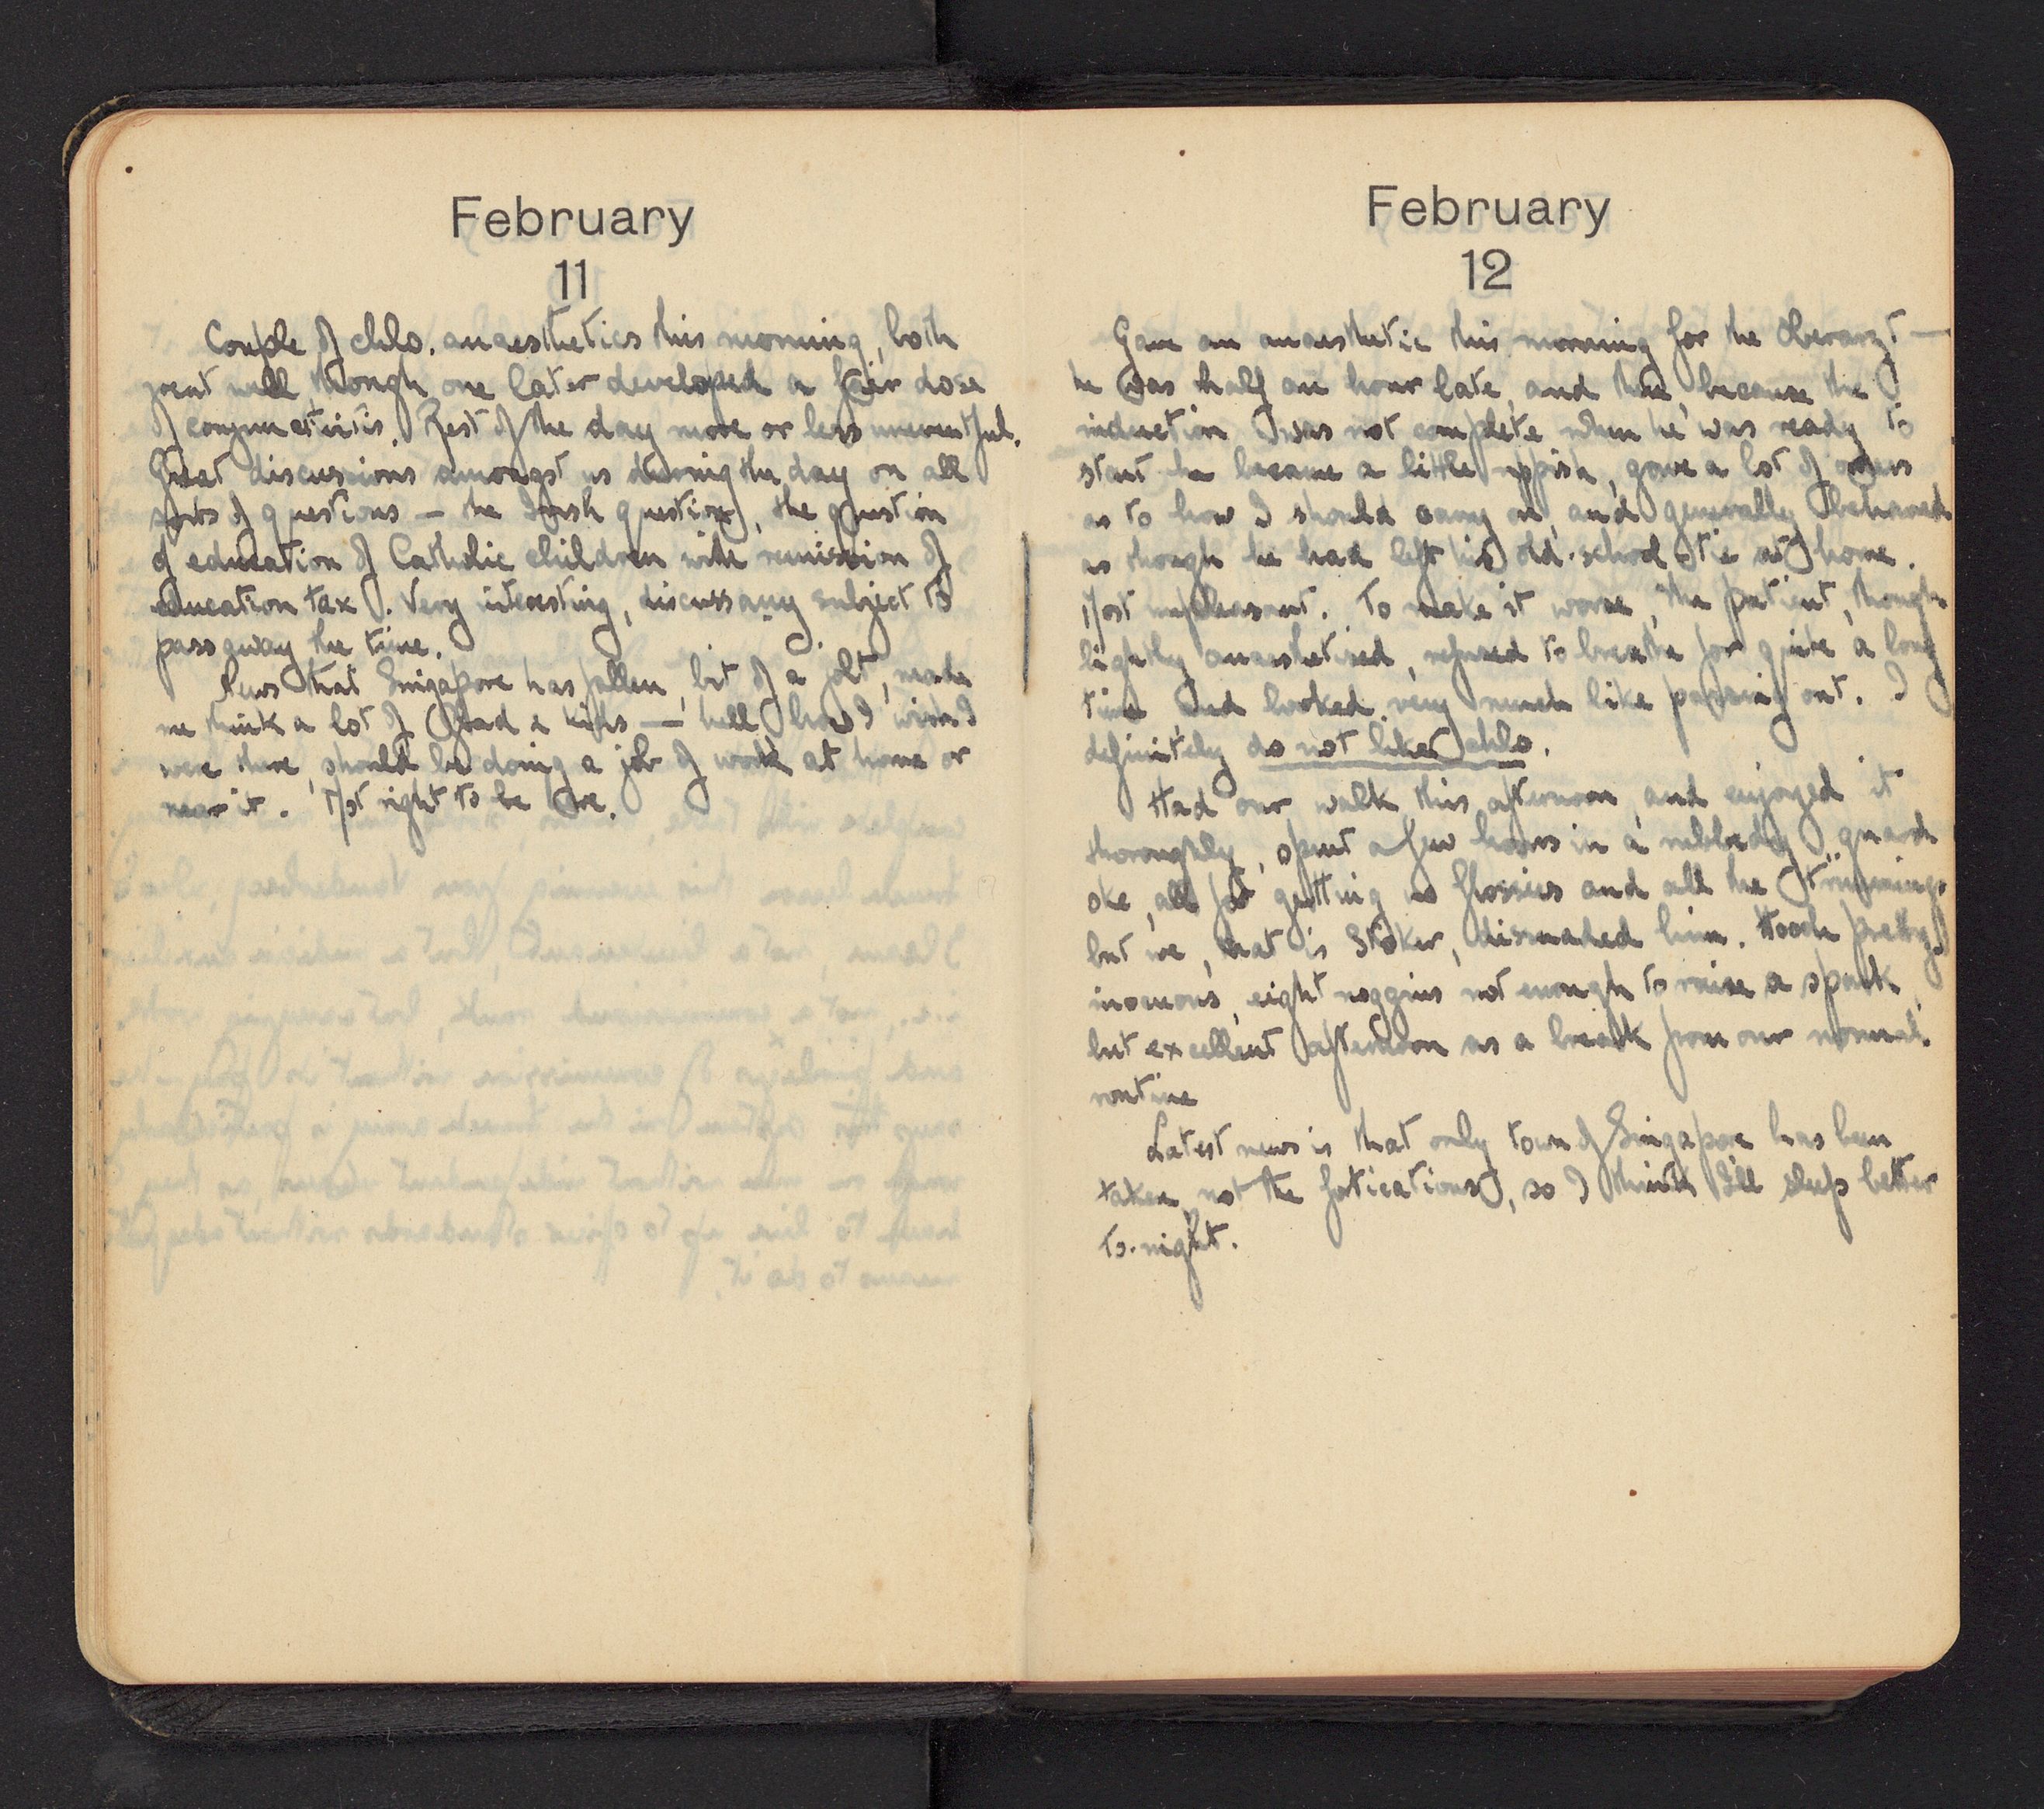 February
11
Couple of chlo. anaesthetics this morning, both
went well, though one later developed a fair dose
of conjunctivitis. Rest of the day more or less uneventful.
Great discussions amongst us during the day on all
sorts of questions — the Irish question, the question
of education of Catholic children with remission of
education tax. Very interesting, discuss any subject to
pass away the time.
News that Singapore has fallen, bit of a jolt, made
me think a lot of & kids — hell, how I wish I
were there, should be doing a job of work at home or
near it. Not right to be here.
February
12
Gave an anaesthetic this morning for the Oberarzt —
he was half an hour late, and then, because the
induction was not complete when he was ready to
start he became a little uppish, gave a lot of orders
as to how I should carry on, and generally behaved
as though he had left his old-school tie at home.
Most unpleasant. To make it worse, the patient, though
lightly anaesthetised, refused to breathe for quite a long
time and looked very much like passing out. I
definitely do not like chlo.
Had our walk this afternoon, and enjoyed it
thoroughly, spent a few hours in a guard
oke, all for getting us flossies and all the trimmings
but we, that is Stoker, dissuaded him. Hooch pretty
inocuous, eight noggins not enough to raise a spark,
but excellent afternoon as a break from our normal
routine
Latest news is that only town of Singapore has been
taken, not the fortications, so I think I'll sleep better
to-night.